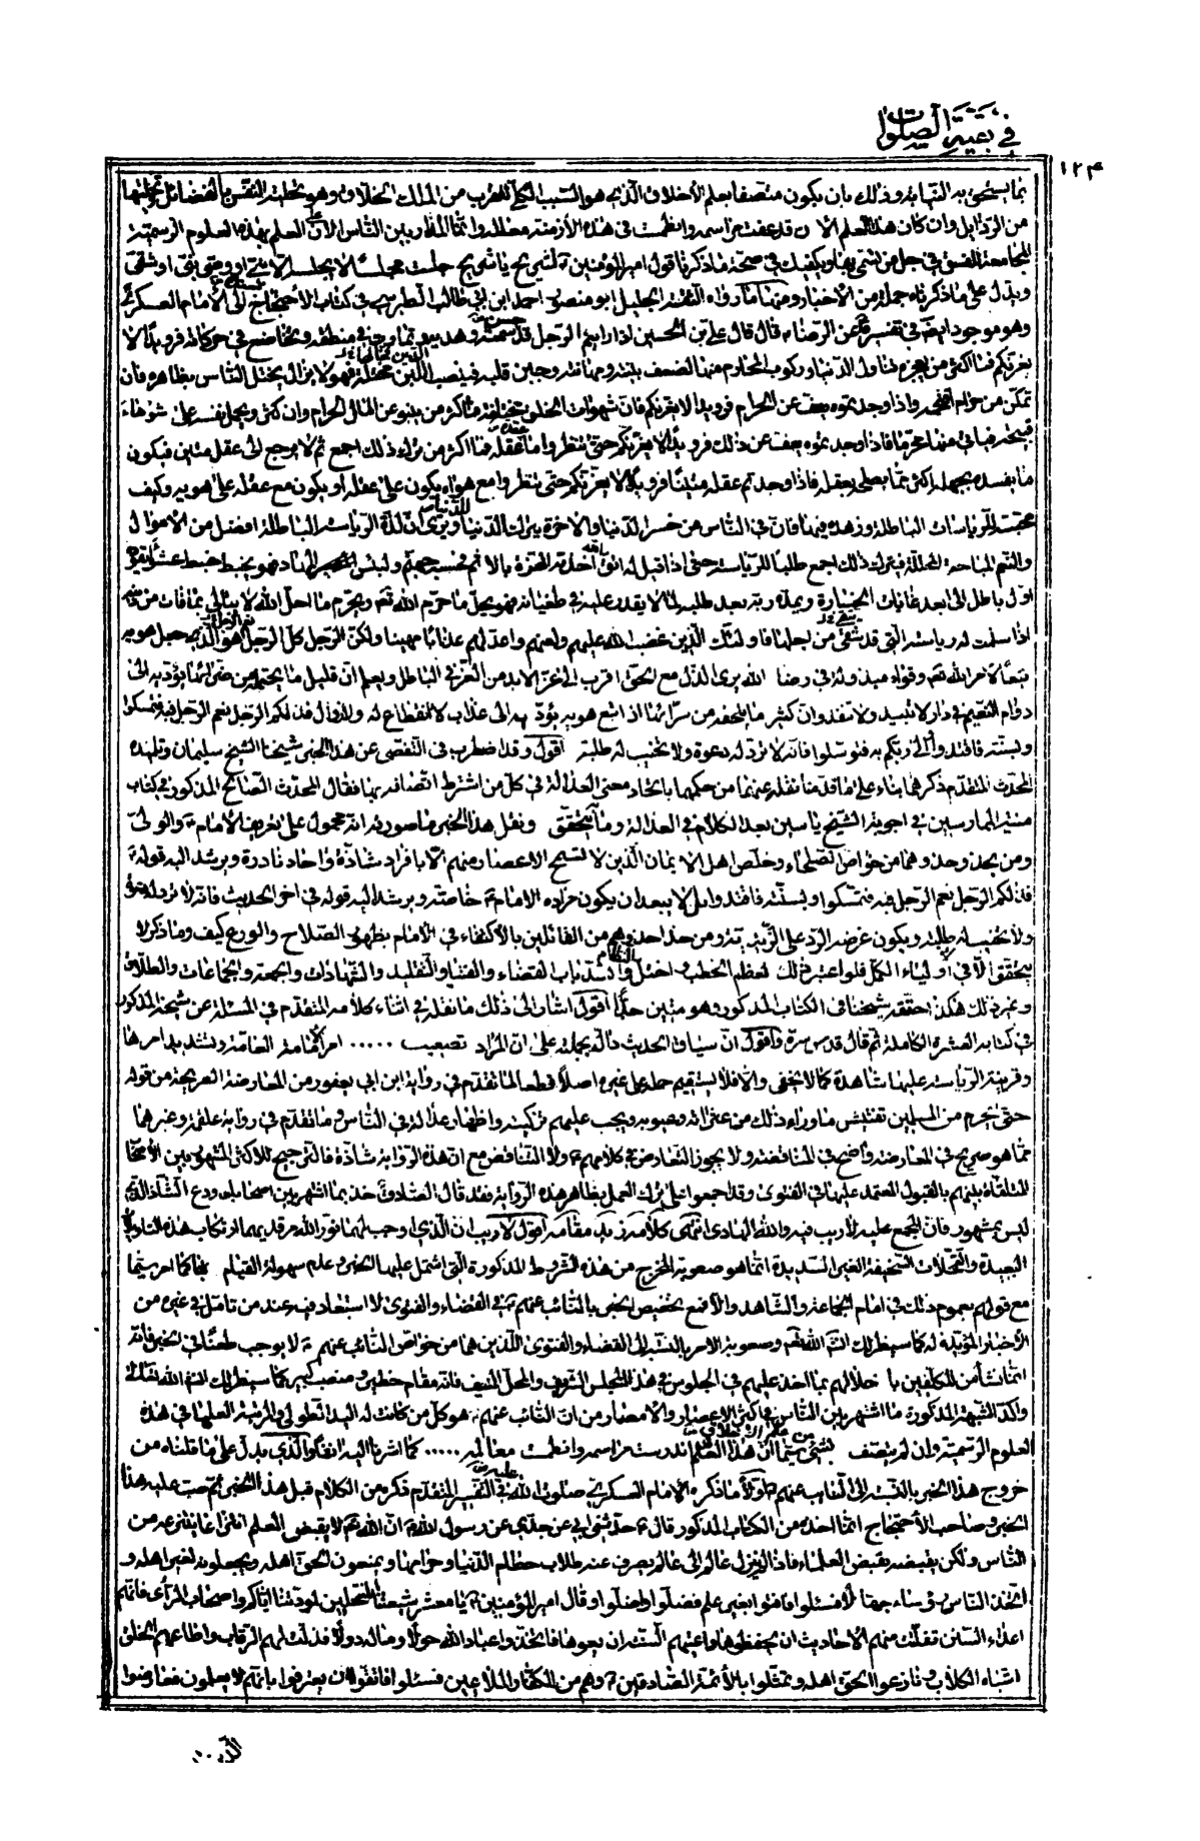 في بقية الصلوات
١٢٤
بما يستحق به النيابة وذلك بان يكون متصفا بعلم الأخلاق الذي هو السبب الكلي للقرب من الملك الخلاق وهو تحلية النفس بالفضائل وتخليتها
من الرذايل وان كان هذا العلم الآن قد عفت مراسمه وانطمست في هذه الأزمنة معالمه وانما المدار بين الناس الآن على العلم بهذه العلوم الرسمية
المجامعة الفسق في جل من تسمى بها ويكفيك في صحة ما ذكرنا قول امير المؤمنين ع لشريح يا شريح جلست مجلسا لا يجلسه الا نبي او وصي نبي او شقي
ويدل على ما ذكرناه جملة من الأخبار ومنها ما رواه الثقة الجليل ابو منصور احمد ابن ابي طالب الطبرسي في كتاب الاحتجاج الى الامام العسكري
وهو موجود ايضا في تفسيره ع عن الرضا ع قال قال علي بن الحسين اذا رايتم الرجل قد حسن سمته وهديه وتماوت في منطقه وتخاضع في حركاته فرويدا لا
يغرنكم فما اكثر من يعجزه تناول الدنيا وركوب المحارم منها لضعف بنيته ومهانته وجبن قلبه فينصب الدين فخا لها فهو لا يزال يختل الناس بظاهره فان
تمكن من حرام اقتحمه واذا وجدتموه يعف عن الحرام فرويدا لا يغرنكم فان شهوات الخلق مختلفة وما اكثر من ينبو عن المال الحرام وان كثر ويحمل نفسه على شوهاء
قبيحة فياتي منها محرما فاذا وجدتموه يعف عن ذلك فرويدا لا يغرنكم حتى تنظروا ما عقدة عقله فما اكثر من ترك ذلك اجمع ثم لا يرجع الى عقل متين فيكون
ما يفسده بجهله اكثر مما يصلحه بعقله فاذا وجدتم عقله متينا فرويدا لا يغرنكم حتى تنظروا مع هواه يكون على عقله او يكون مع عقله على هويه وكيف
محبته للرياسات الباطلة وزهده فيها فان في الناس من خسر الدنيا والآخرة يترك الدنيا للدنيا ويرى ان لذة الرياسة الباطلة افضل من الاموال
والنعم المباحة المحللة فيترك ذلك اجمع طلبا للرياسة حتى اذا قيل له اتق الله اخذته العزة بالاثم فحسبه جهنم ولبئس المهاد فهو يخبط خبط عشواء يقوده
اول باطل الى ابعد غايات الخسارة ويمده ربه بعد طلبه لما لا يقدر عليه في طغيانه فهو يحل ما حرم الله ويحرم ما احل الله لا يبالي بما فات من دينه
اذا سلمت له رياسته التي قد شقي من اجلها فاولئك الذين غضب الله عليهم ولعنهم واعد لهم عذابا مهينا ولكن الرجل كل الرجل نعم الرجل هو الذي جعل هويه
تبعا لامر الله وقواه مبذولة في رضا الله يرى الذل مع الحق اقرب الى عز الابد من العز في الباطل ويعلم ان قليل ما يحتمله من ضرائها يؤديه الى
دوام النعيم في دار لا تبيد ولا تنفد وان كثير ما يلحقه من سرائها ان اتبع هويه يؤديه الى عذاب لا انقطاع له ولا زوال فذلكم الرجل نعم الرجل فبه فتمسكوا
وبسنته فاقتدوا والى ربكم به فتوسلوا فانه لا ترد له دعوة ولا تخيب له طلبة اقول وقد اضطرب في التفصي عن هذا الخبر شيخنا الشيخ سليمان وتلميذه
المحدث المتقدم ذكرهما بناء على ما قدمنا نقله عنهما من حكمهما باتحاد معنى العدالة في كل من اشترط اتصافه بها فقال المحدث الصالح المذكور في كتاب
منية الممارسين في اجوبة الشيخ ياسين بعد الكلام في العدالة وما به تتحقق ونقل هذا الخبر ما صورته انه محمول على تعريف الامام ع والولي
ومن يحذو حذوهما من خواص الصلحاء وخلص اهل الايمان الذين لا تسمح الاعصار منهم الا بافراد شاذة وآحاد نادرة ويرشد اليه قوله ع
فذلكم الرجل نعم الرجل فبه فتمسكوا وبسنته فاقتدوا بل لا يبعد ان يكون مراده الامام ع خاصة ويرشد اليه قوله في آخر الحديث فانه لا ترد له دعوة
ولا تخيب له طلبة ويكون غرضه الرد على الزيدية ومن حذا حذوهم من القائلين بالاكتفاء في الامام بظهور الصلاح والورع كيف وما ذكر لا
يتحقق الا في اولياء الكمل فلو اعتبر في ذلك لعظم الخطب واختل النظام وانسد باب القضاء والفتيا والتقليد والشهادات والجمعة والجماعات والطلاق
وغير ذلك هكذا حققه شيخنا في الكتاب المذكور وهو متين جدا اقول اشار الى ذلك ما نقله في اثناء كلامه المتقدم في المسئلة عن شيخه المذكور
في كتابه العشرة الكاملة ثم قال قدس سره واقول ان سياق الحديث دال بجملته على ان المراد تصعيب ..... امر الامامة العامة وتشديد امرها
وقرينة الرياسة عليها شاهدة كما لا يخفى والا فلا يستقيم حمله على غيره اصلا قطعا لما تقدم في رواية ابن ابي يعفور من المعارضة الصريحة من قوله
حتى يحرم من المسلمين تفتيش ما وراء ذلك من عثراته وعيوبه ويجب عليهم تزكيته واظهار عدالته في الناس وما تقدم في رواية علقمة وغيرهما
مما هو صريح في المعارضة واضح في المناقضة ولا يجوز التعارض في كلامهم ع ولا التناقض مع ان هذه الرواية شاذة فالترجيح للاكثر المشهور بين الاصحاب
المتلقاة بينهم بالقبول المعتمد عليها في الفتوى وقد اجمعوا على ترك العمل بظاهر هذه الرواية فقد قال الصادق ع خذ بما اشتهر بين اصحابك ودع الشاذ الذي
ليس بمشهور فان المجمع عليه لا ريب فيه والله الهادي انتهى كلامه زيد مقامه اقول لا ريب ان الذي اوجب لهما نور الله مرقديهما ارتكاب هذه التاويلات
البعيدة والتمحلات السخيفة الغير السديدة انما هو صعوبة المخرج من هذه الشروط المذكورة التي اشتمل عليها الخبر وعدم سهولة القيام بها كما امر سيما
مع قولهم بعموم ذلك في امام الجماعة والشاهد والا فمع تخصيص الخبر بالنائب عنهم ع في القضاء والفتوى لا استبعاد فيه عند من تامل في غيره من
الاخبار المؤيدة له كما سيظهر لك انشاء الله تعالى وصعوبة الامر بالنسبة الى القضاء والفتوى اللذين هما من خواص النائب عنهم ع لا يوجب طعنا في الخبر فانه
انما نشأ من المكلفين باخلالهم بما اخذ عليهم في الجلوس في هذا المجلس الشريف والمحل المنيف فانه مقام خطير ومنصب كبير كما سيظهر لك انشاء الله تعالى
واكد الشبهة المذكورة ما اشتهر بين الناس في اكثر الاعصار والامصار من ان النائب عنهم ع هو كل من كانت له اليد الطولى والمرتبة العليا في هذه
العلوم الرسمية وان لم يتصف بشيء من علم الاخلاق سيما ان هذا العلم اندرست مراسمه وانطمست معالمه ..... كما اشرنا اليه انفا والذي يدل على ما قلناه من
خروج هذا الخبر بالنسبة الى النائب عنهم ع اولا ما ذكره الامام العسكري صلوات الله عليه في التفسير المتقدم ذكره من الكلام قبل هذا الخبر ثم رتب عليه هذا
الخبر وصاحب الاحتجاج انما اخذه من الكتاب المذكور قال ع حدثني ابي عن جدي عن رسول الله ص ان الله لا يقبض العلم انتزاعا ينتزعه من
الناس ولكن يقبضه بقبض العلماء فاذا لم ينزل عالم الى عالم يصرف عنه طلاب حطام الدنيا وحرامها ويمنعون الحق اهله ويجعلونه لغير اهله و
اتخذ الناس رؤساء جهالا فسئلوا فافتوا بغير علم فضلوا واضلوا وقال امير المؤمنين ع يا معشر شيعتنا المنتحلين لمودتنا اياكم واصحاب الرأي فانهم
اعداء السنن تفلتت منهم الاحاديث ان يحفظوها واعيتهم السنة ان يعوها فاتخذوا عباد الله خولا وماله دولا فذلت لهم الرقاب واطاعهم الخلق
اشباه الكلاب ونازعوا الحق اهله وتمثلوا بالائمة الصادقين ع وهم من الكفار الملاعين فسئلوا فانفوا ان يعترفوا بانهم لا يعلمون فعارضوا
الدين